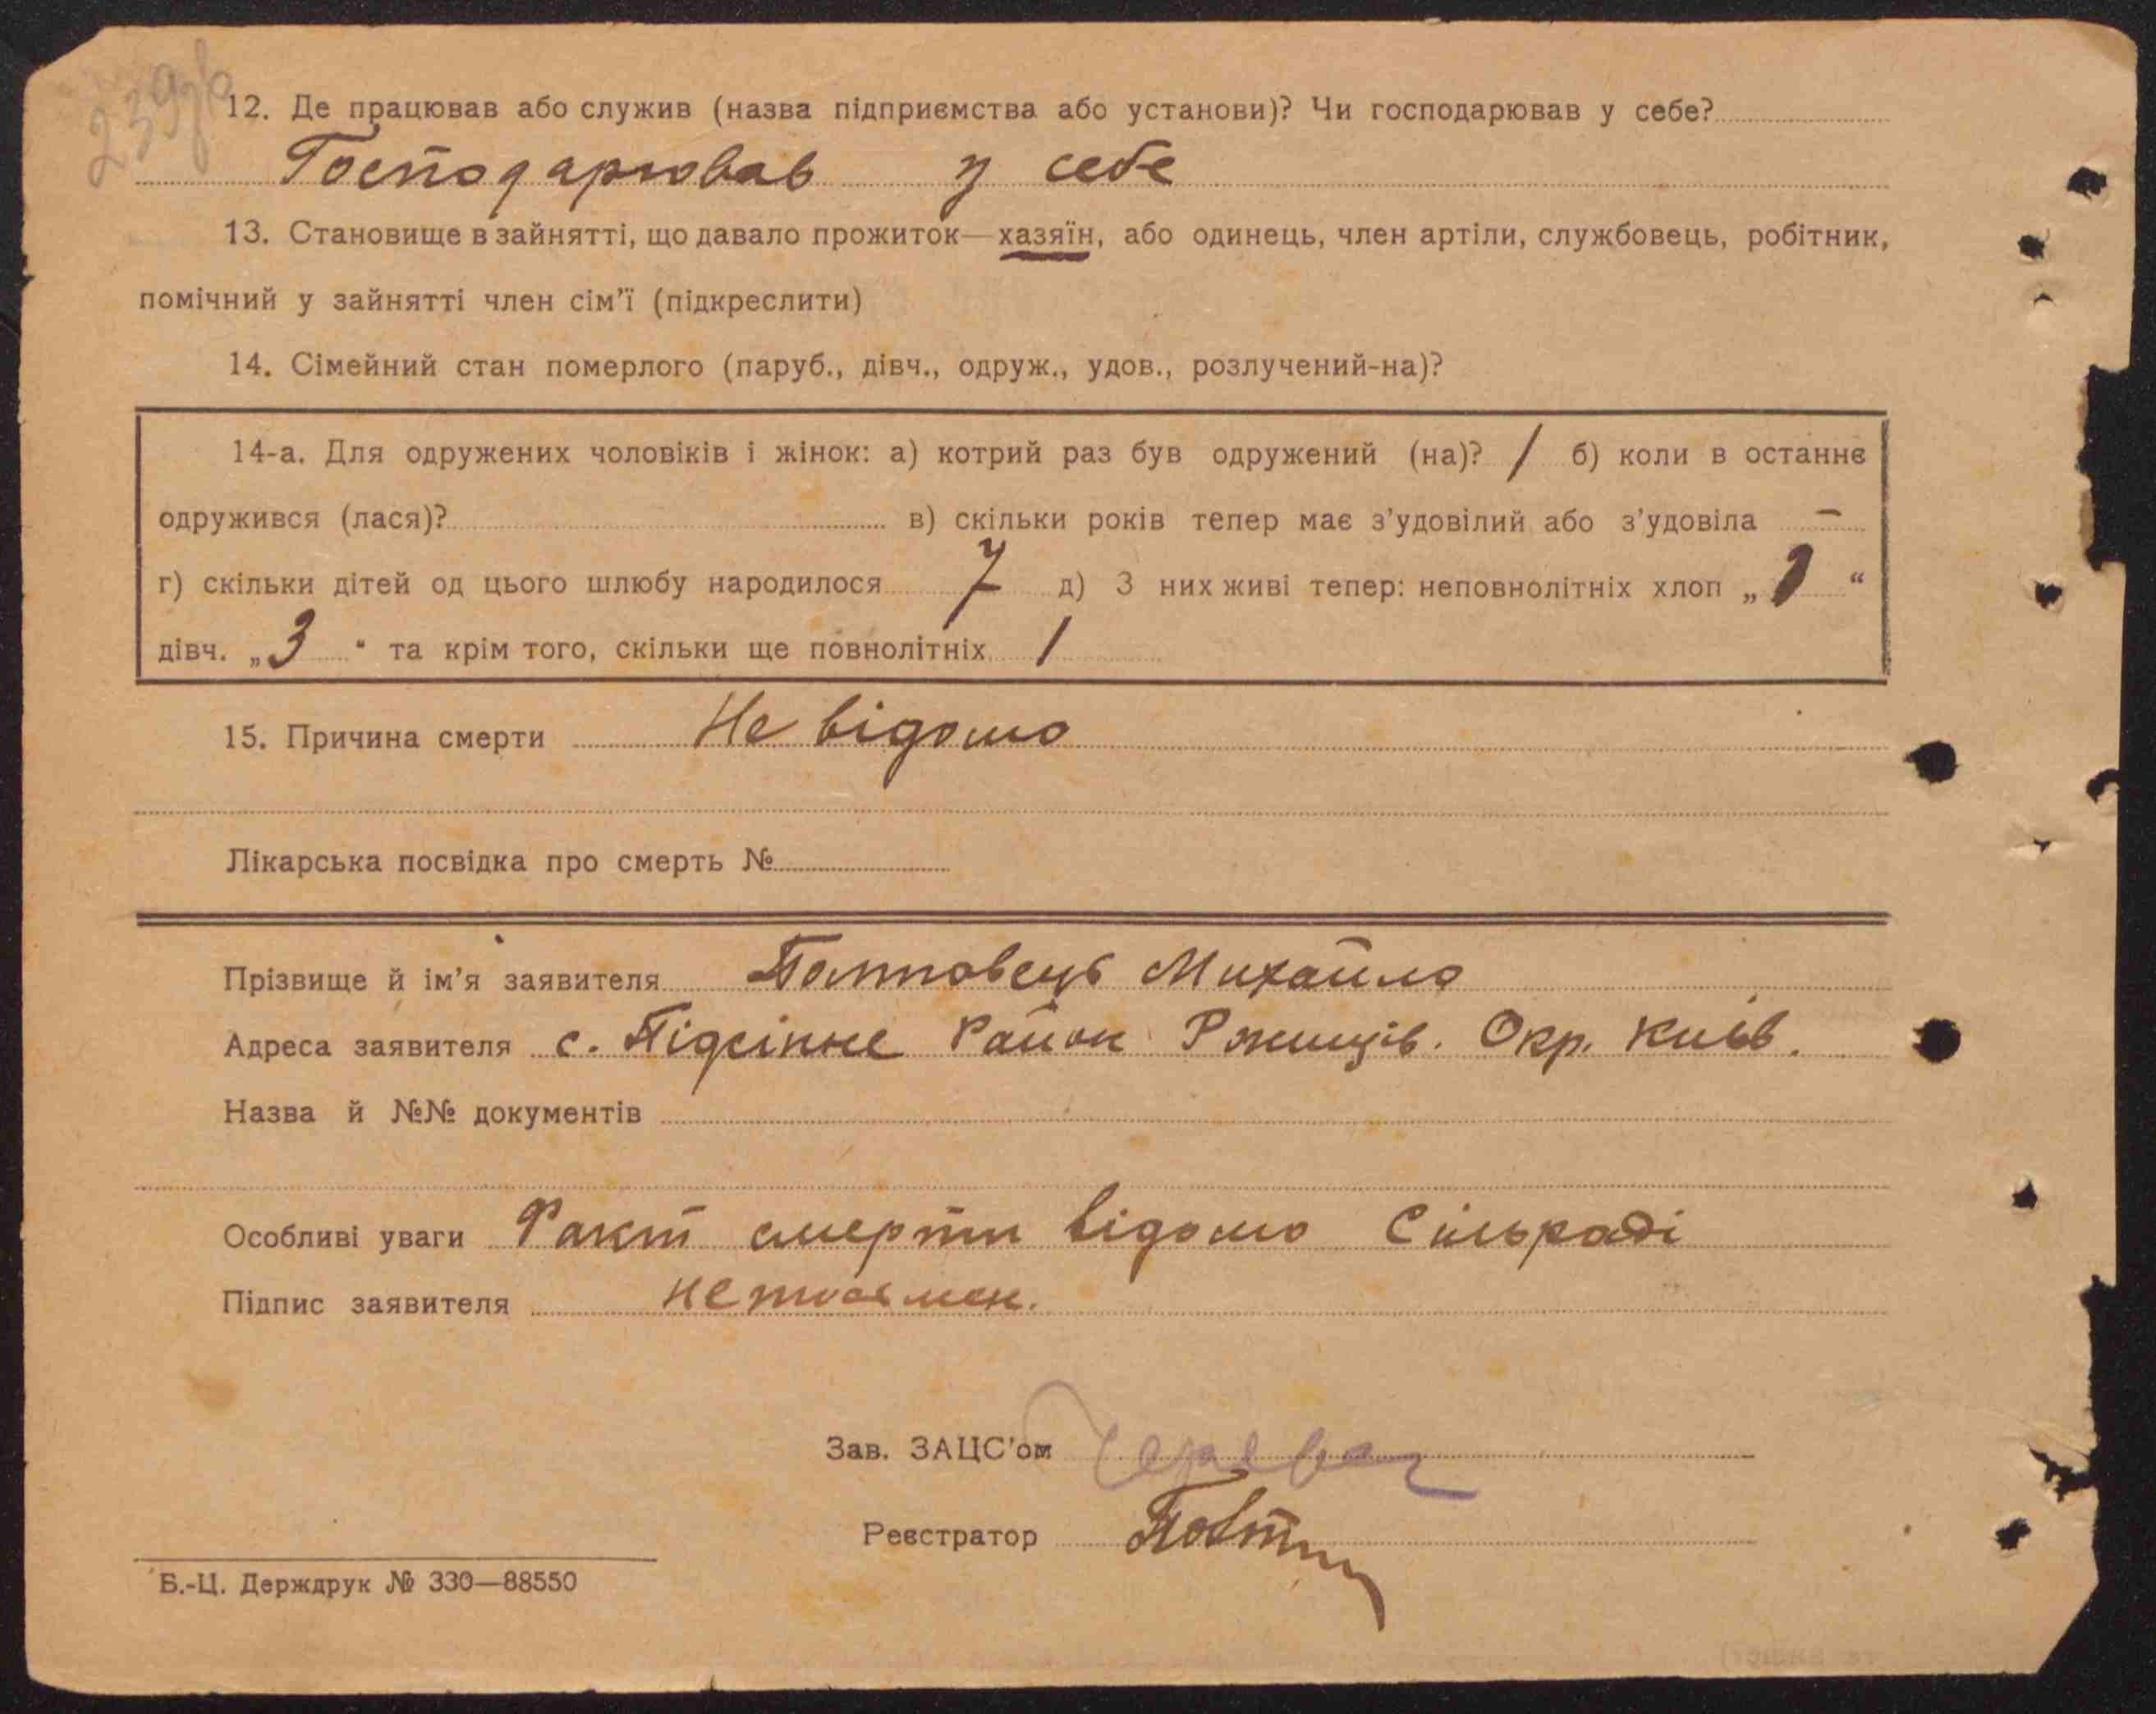 239зв
12. Де працював або служив (назва підприємства або установи)? Чи господарював у себе?
Господарював у себе
13. Становище в зайнятті, що давало прожиток—хазяїн, або одинець, член артіли, службовець, робітник,
помічний у зайнятті член сім'ї (підкреслити)
14. Сімейний стан померлого (паруб., дівч., одруж., удов., розлучений-на)?
14-а. Для одружених чоловіків і жінок: а) котрий раз був одружений (на)? 1 б) коли в останнє
одружився (лася)? в) скільки років тепер має з'удовілий або з'удовіла –
г) скільки дітей од цього шлюбу народилося 7 д) З них живі тепер: неповнолітніх хлоп „ “
дівч. „3“ та крім того, скільки ще повнолітніх 1
15. Причина смерти Не відомо
Лікарська посвідка про смерть №
Прізвище й ім'я заявителя Михайло
Адреса заявителя с. Підсінне Район Ржищів. Окр. Київ.
Назва й №№ документів
Особливі уваги Факт смерти відомо Сільраді
Підпис заявителя
Зав. ЗАЦС'ом
Реєстратор
Б.-Ц. Держдрук № 330—88550